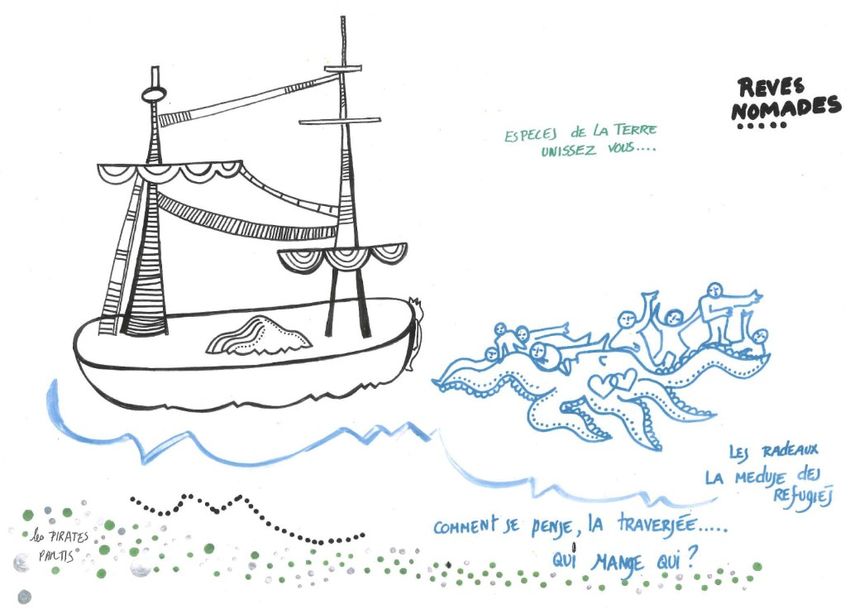 REVES
NOMADES
ESPECES DE LA TERRE
UNISSEZ VOUS....
LES RADEAUX
LA MEDUSE DES
REFUGIÉS
COMMENT SE PENSE, LA TRAVERSÉE.....
QUI MANGE QUI ?
les PIRATES
PARTIS